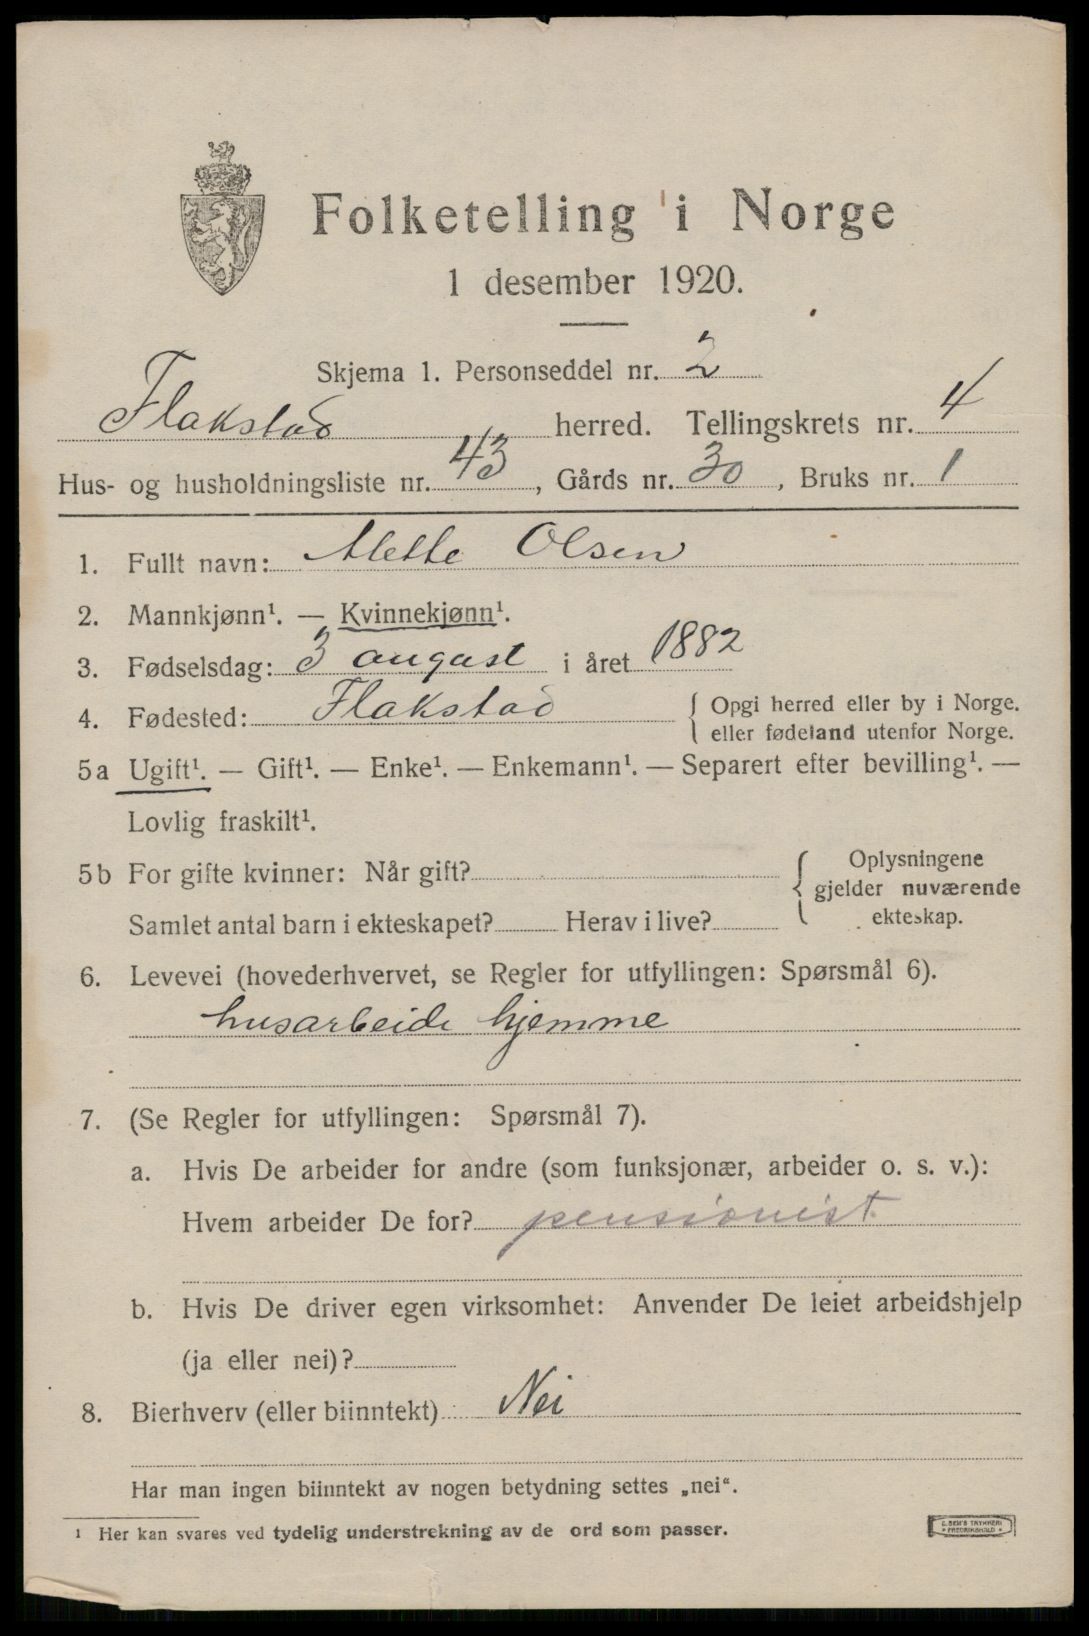 Folketelling i Norge
1 desember 1920.
Skjema 1. Personseddel nr. 2
Flakstad herred. Tellingskrets nr. 4
Hus- og husholdningsliste nr. 43, Gårds nr. 30, Bruks nr. 1
1. Fullt navn: Alette Olsen
2. Mannkjønn¹. — Kvinnekjønn¹.
3. Fødselsdag: 3 august i året 1882
4. Fødested: Flakstad { Opgi herred eller by i Norge.
eller fødeland utenfor Norge.
5a Ugift¹. — Gift¹. — Enke¹. — Enkemann¹. — Separert efter bevilling¹. —
Lovlig fraskilt¹.
5b For gifte kvinner: Når gift?
Samlet antal barn i ekteskapet? Herav i live?
{ Oplysningene
gjelder nuværende
ekteskap.
6. Levevei (hovederhvervet, se Regler for utfyllingen: Spørsmål 6).
husarbeide hjemme
7. (Se Regler for utfyllingen: Spørsmål 7).
a. Hvis De arbeider for andre (som funksjonær, arbeider o. s. v.):
Hvem arbeider De for? pensionist
b. Hvis De driver egen virksomhet: Anvender De leiet arbeidshjelp
(ja eller nei)?
8. Bierhverv (eller biinntekt) Nei
Har man ingen biinntekt av nogen betydning settes „nei“.
¹ Her kan svares ved tydelig understrekning av de ord som passer.
E. SEM'S TRYKKERI
• FREDRIKSHALD •